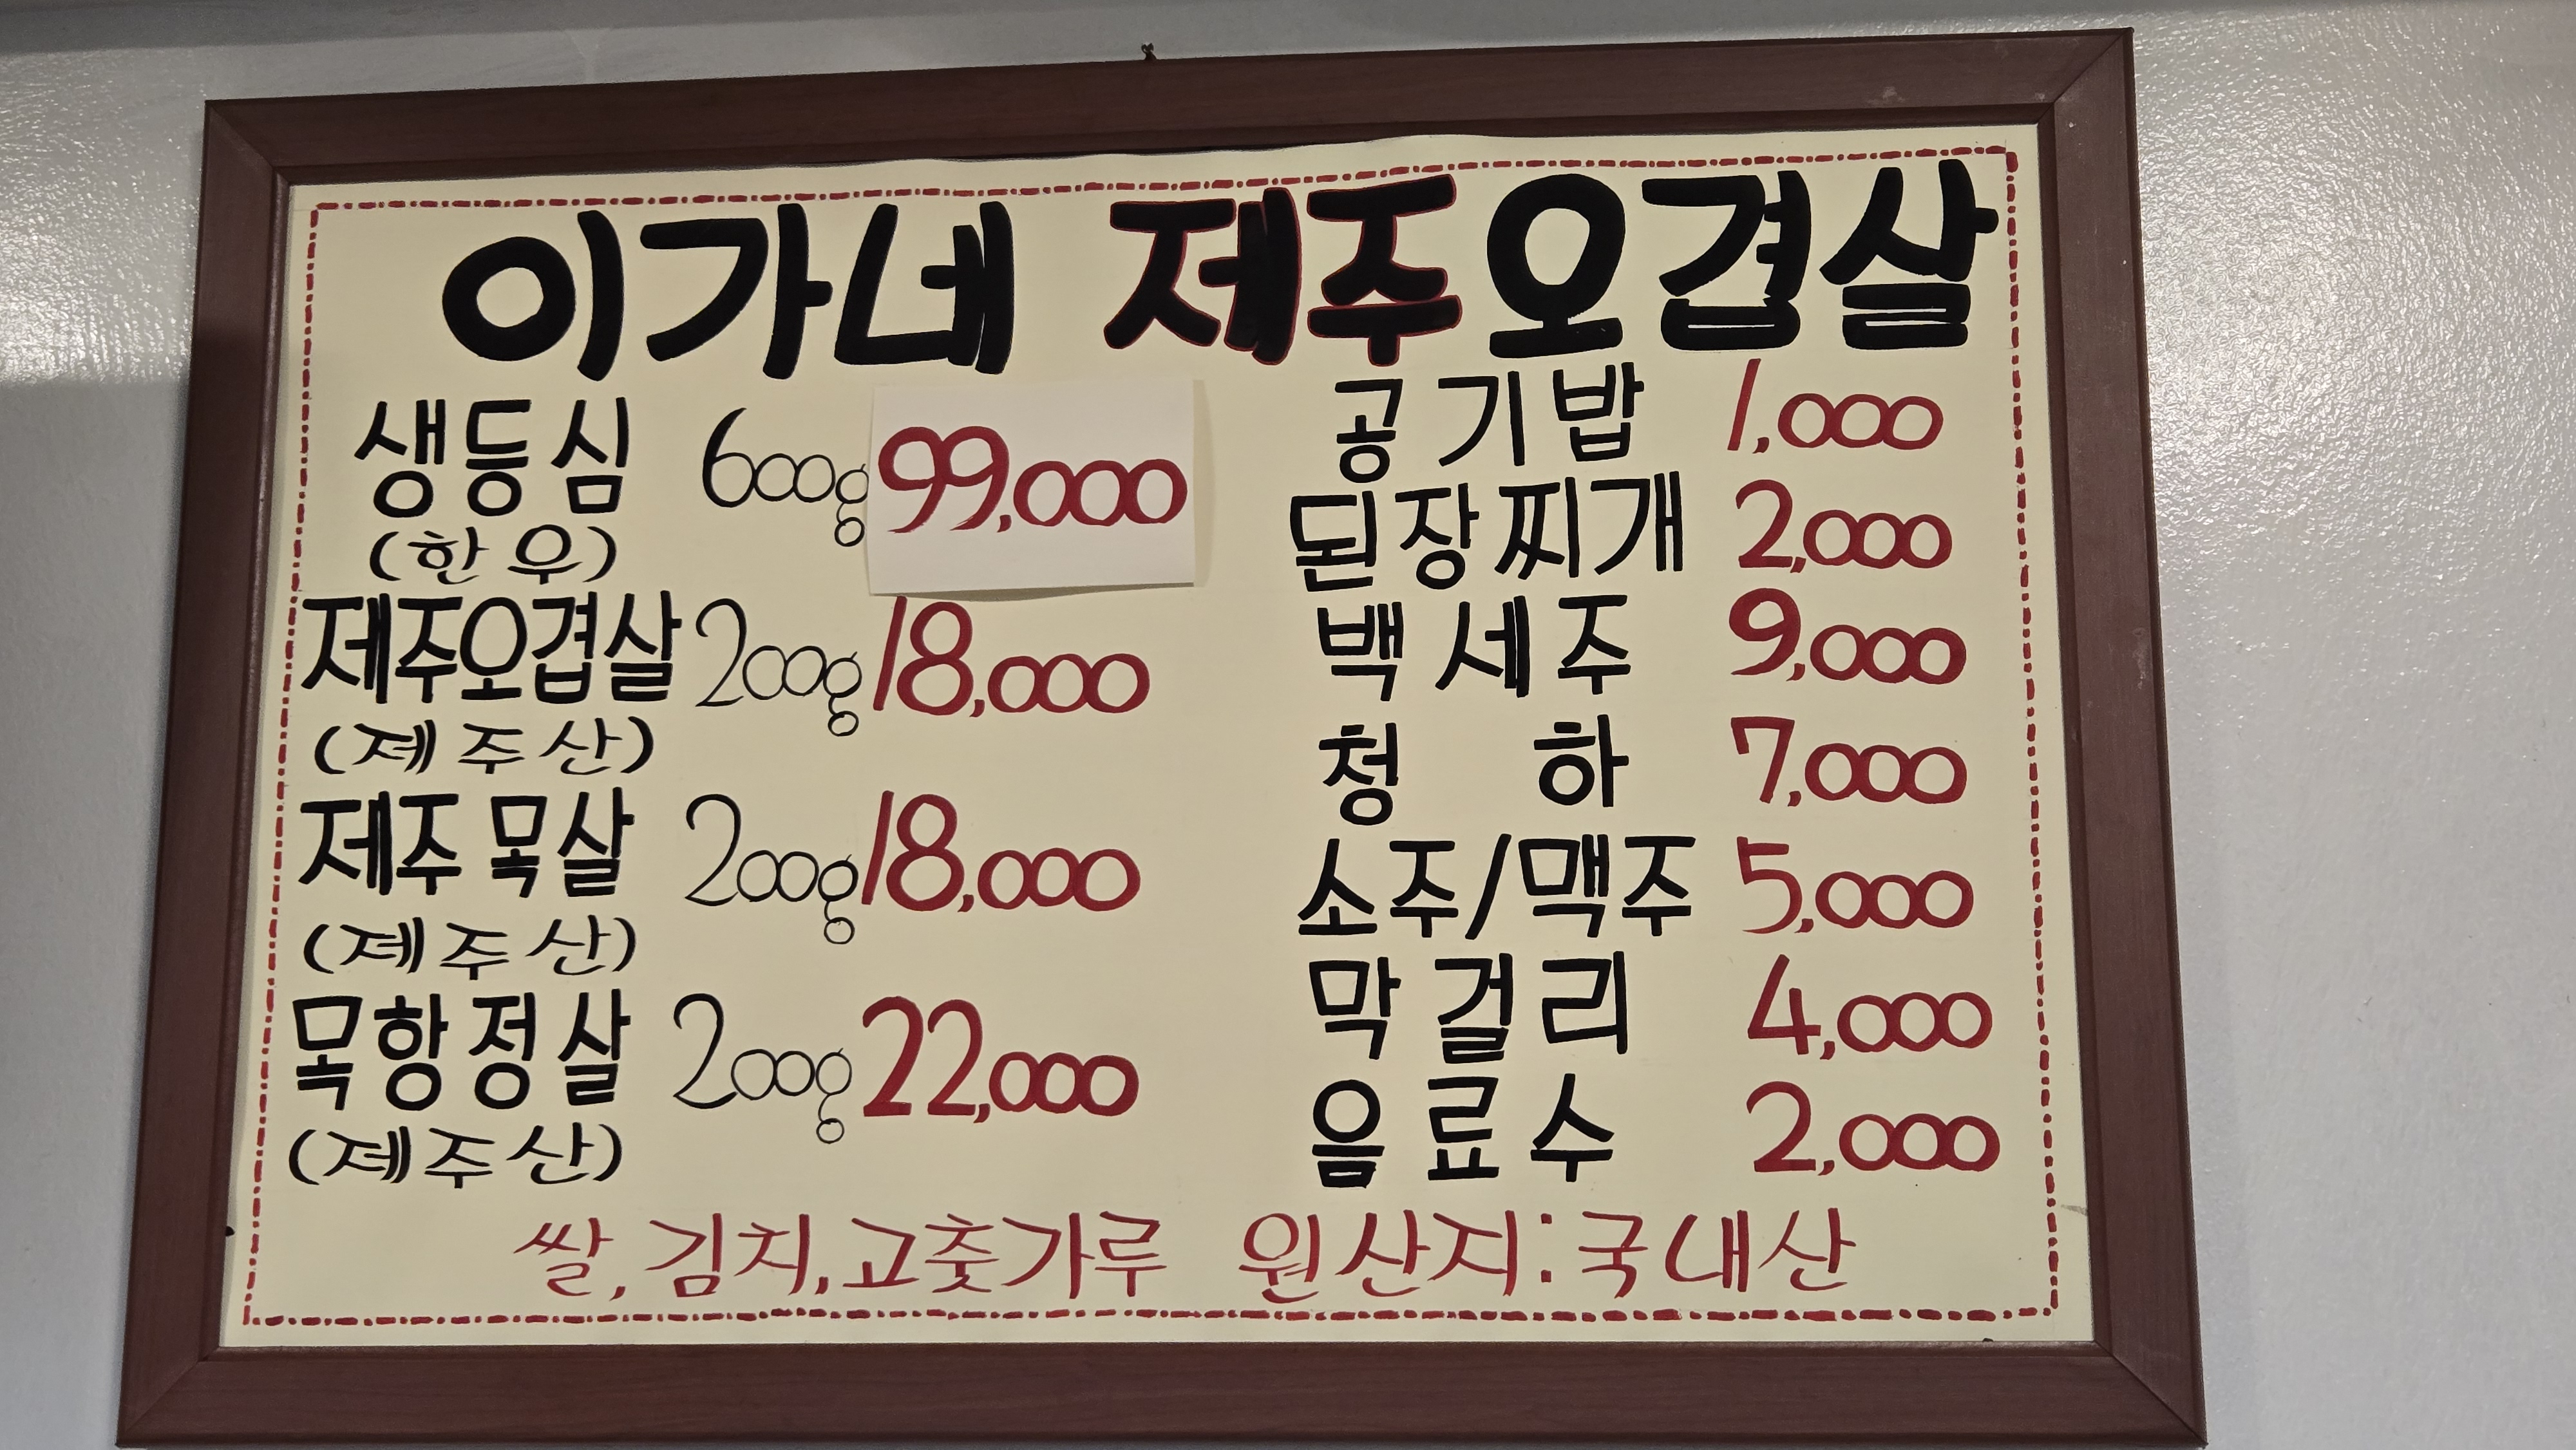 이가네 제주오겹살
생등심 600g 99,000
(한우)
제주오겹살 200g 18,000
(제주산)
제주목살 200g 18,000
(제주산)
목항정살 200g 22,000
(제주산)
공기밥 1,000
된장찌개 2,000
백세주 9,000
청하 7,000
소주/맥주 5,000
막걸리 4,000
음료수 2,000
쌀, 김치, 고춧가루 원산지:국내산